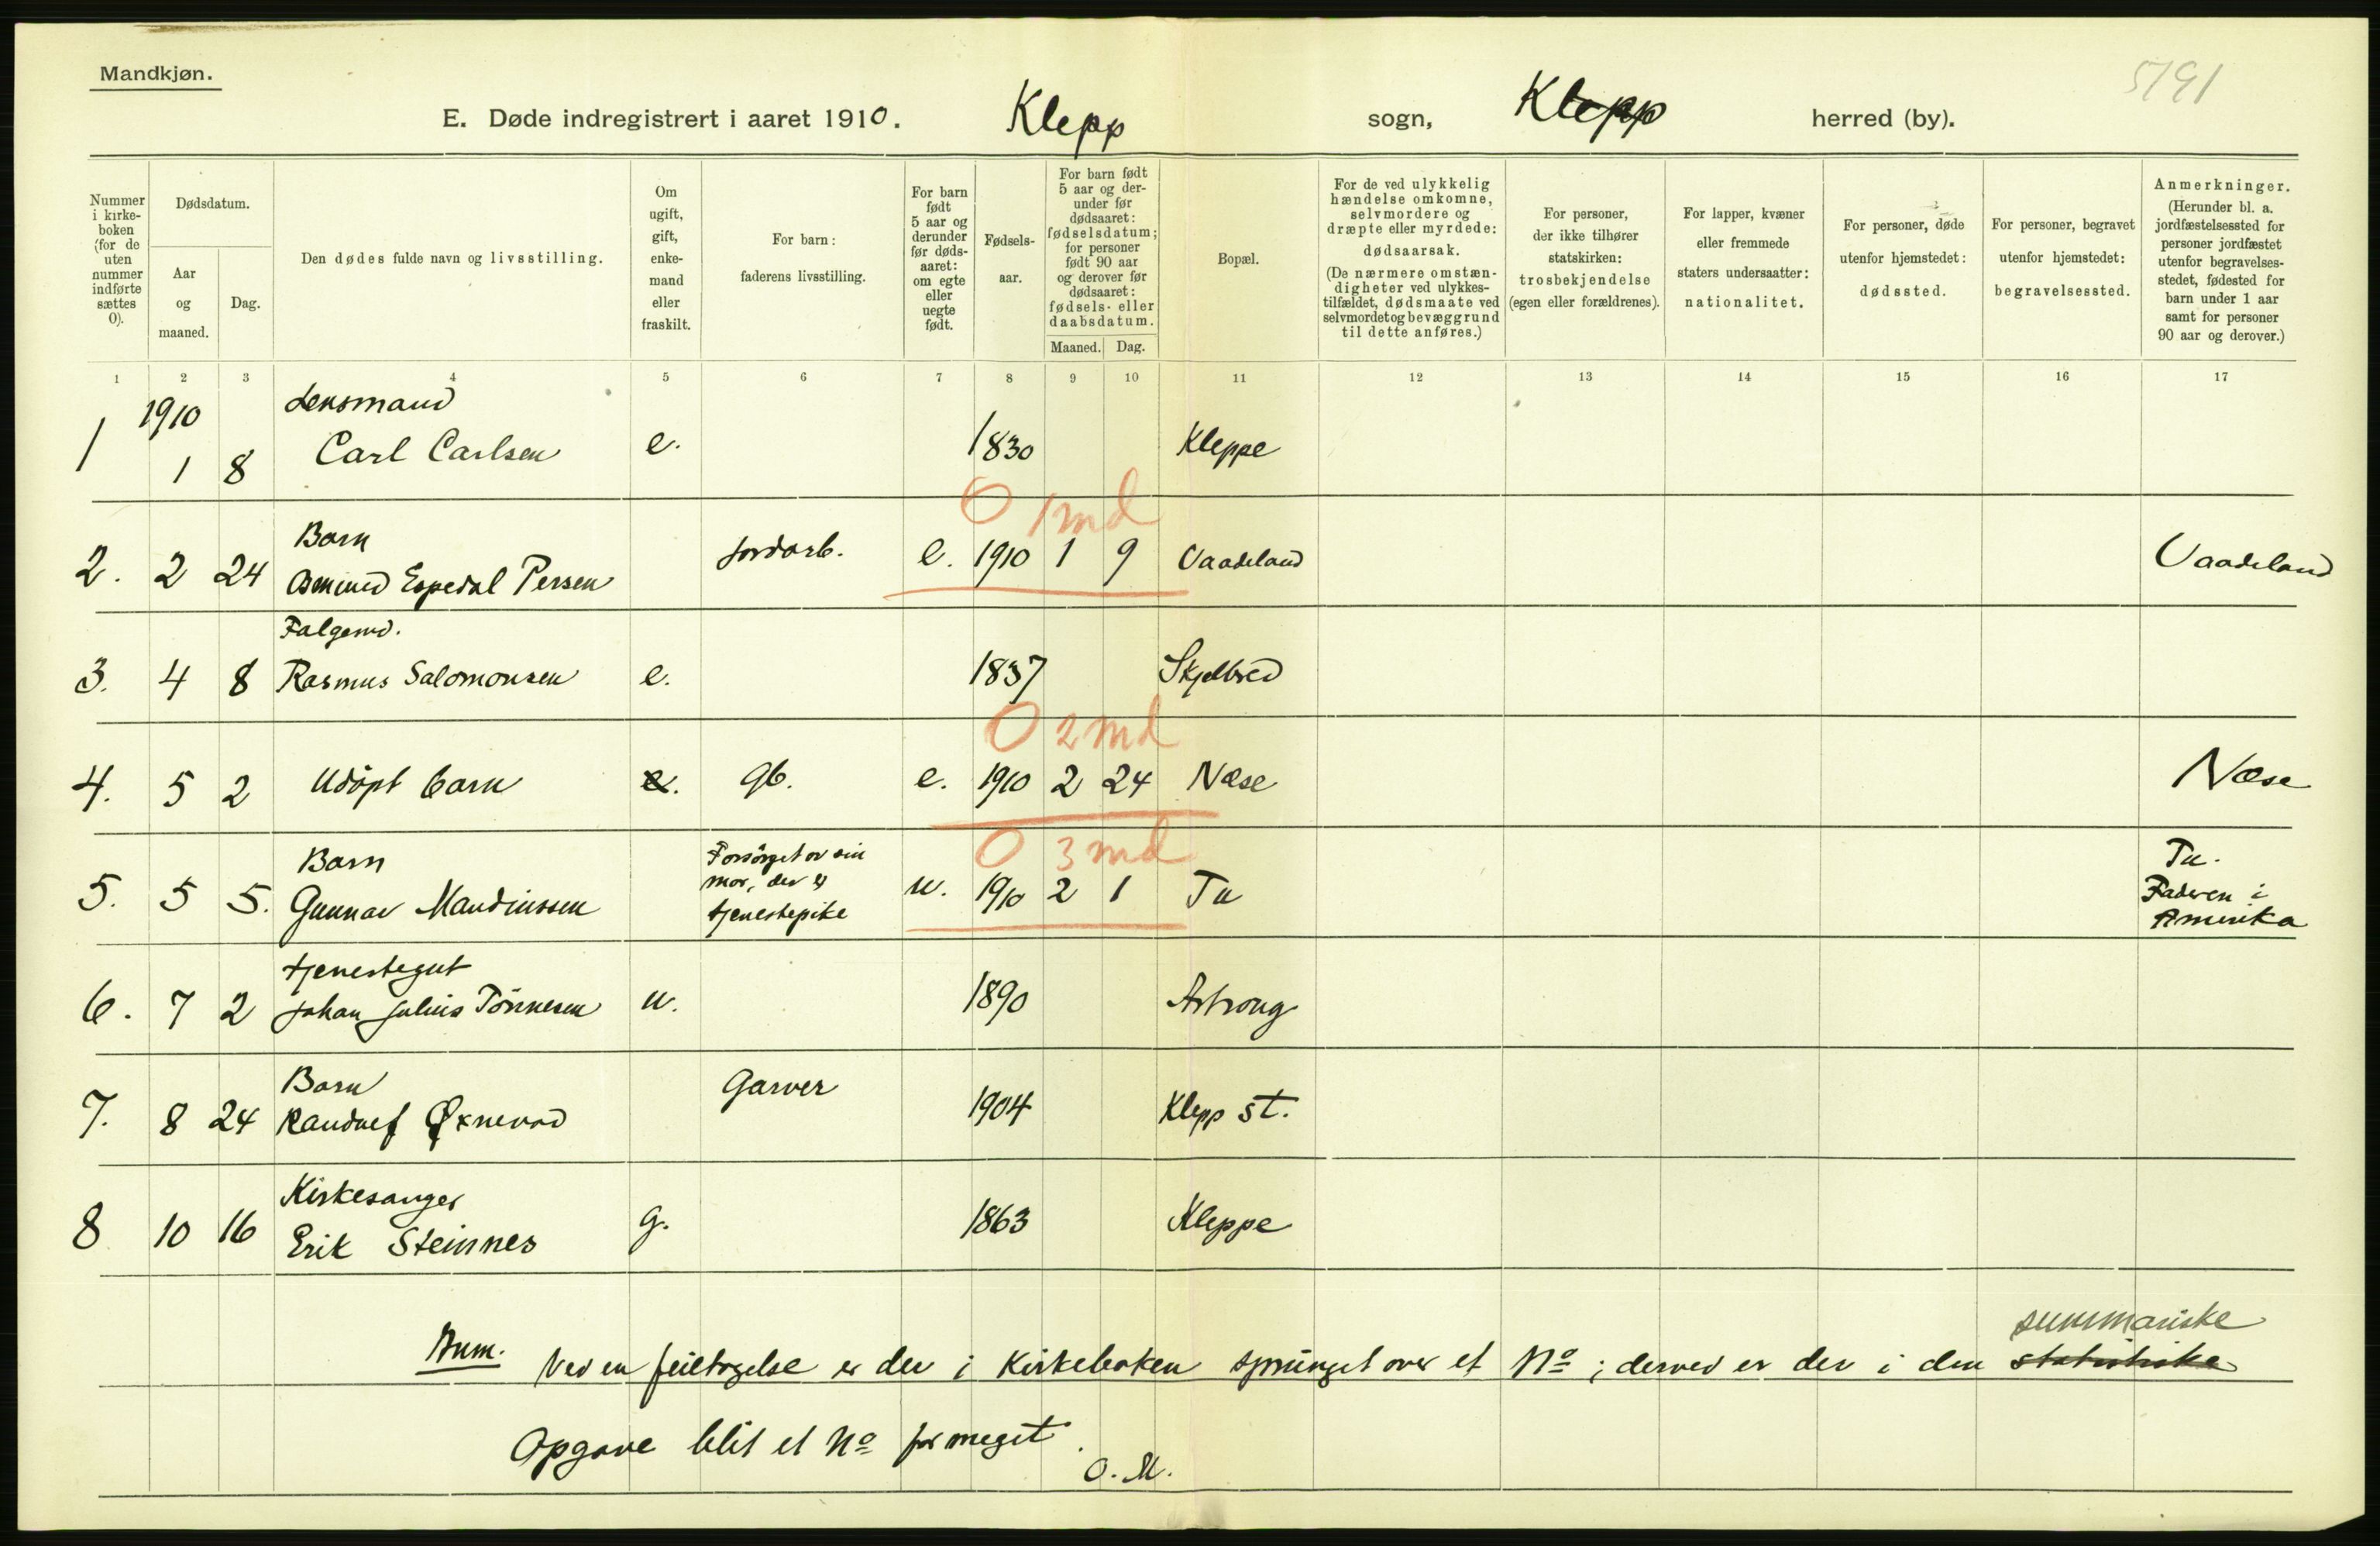 Mandkjøn.
5791
E. Døde indregistrert i aaret 1910. Klepp sogn, Klepp herred (by).
Nummer i kirke- boken (for de uten nummer indførte sættes 0).
Dødsdatum.
Aar og maaned.
Dag.
Den dødes fulde navn og livsstilling.
Om ugift, gift, enke- mand eller fraskilt.
For barn: faderens livsstilling.
For barn født 5 aar og derunder før døds- aaret: om egte eller uegte født.
Fødsels- aar.
For barn født 5 aar og der- under før dødsaaret: fødselsdatum; for personer født 90 aar og derover før dødsaaret: fødsels- eller daabsdatum.
Maaned. Dag.
Bopæl.
For de ved ulykkelig hændelse omkomne, selvmordere og dræpte eller myrdede: dødsaarsak. (De nærmere omstæn- digheter ved ulykkes- tilfældet, dødsmaate ved selvmordet og bevæggrund til dette anføres.)
For personer, der ikke tilhører statskirken: trosbekjendelse (egen eller forældrenes).
For lapper, kvæner eller fremmede staters undersaatter: nationalitet.
For personer, døde utenfor hjemstedet: dødssted.
For personer, begravet utenfor hjemstedet: begravelsessted.
Anmerkninger. (Herunder bl. a. jordfæstelsessted for personer jordfæstet utenfor begravelses- stedet, fødested for barn under 1 aar samt for personer 90 aar og derover.)
1 2 3 4 5 6 7 8 9 10 11 12 13 14 15 16 17
1910 Lensmand
1 1 8 Carl Carlsen e. 1830 Kleppe
0 1 md
Barn
2. 2 24 Osmund Espedal Persen Jordarb. e. 1910 1 9 Vaadeland Vaadeland
Følgemd.
3. 4 8 Rasmus Salomonsen e. 1837 Skjelbred
0 2 md
4. 5 2 Udöpt barn e. gb. e. 1910 2 24 Næse Næse
0 3 md
Barn Forsörget av sin Tu.
mor, der er Faderen i
5. 5 5. Gunnar Maudinssen tjenestepike u. 1910 2 1 Tu Amerika
Tjenestegut
6. 7 2 Johan Julius Tönnesen u. 1890 Astroug
Barn Garver
7. 8 24 Randulf Øxnevad 1904 Klepp st.
Kirkesanger
8 10 16 Erik Steinnes g. 1863 Kleppe
summariske
Anm. Ved en feiltagelse er der i Kirkeboken sprunget over et No; derved er der i den statistiske
Opgave blit et No for meget.
O. M.